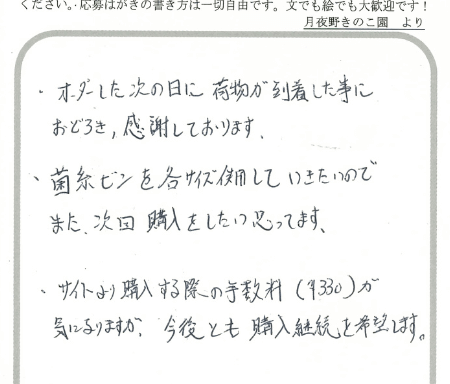 ください。応募はがきの書き方は一切自由です。文でも絵でも大歓迎です！
月夜野きのこ園　より
・オーダーした次の日に荷物が到着した事に
おどろき,感謝しております。
・菌糸ビンを各サイズ使用していきたいので
また、次回購入をしたい思ってます。
・サイトより購入する際の手数料(¥330)が
気になりますが、今後とも購入継続を希望します。